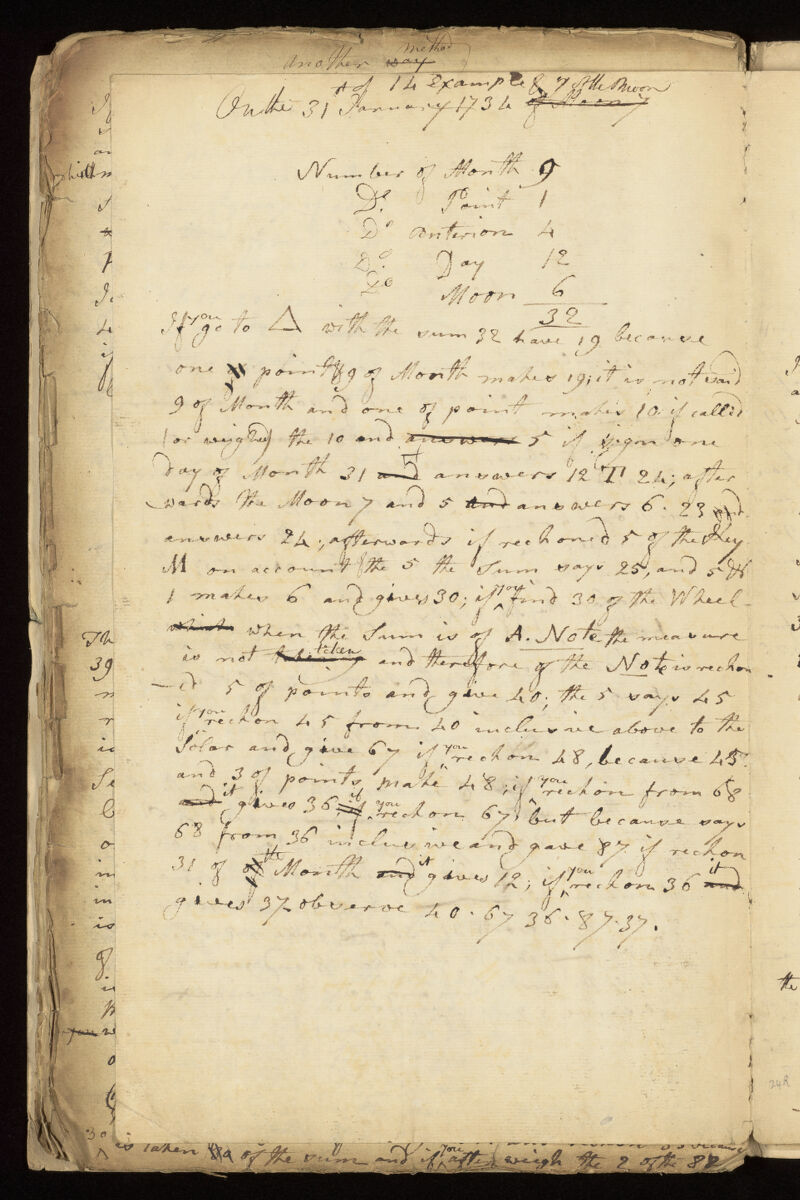 another method way
14 Example & 7 of the Moon
On the 31st of January 1734 of Moon 7
Number of Month 9
Do. Point 1
Do anterion 4
Do. Day 12
Do Moon 6
32
If you go to △ with the sum 32 have 19 because
one point & 9 of Month makes 19; it is not said
9 of Month and one of point makes 10 if called
(or weighed) the 10 and answers 5 if sign one
day of Month 31 and it answers 12 24; after
wards the Moon 7 and 5 and answers 6. 23 and
answers 24; afterwards if reckoned 5 of the Key
M on account of the 5 the Sum says 25, and 5 &
1 makes 6 and gives 30; if you find 30 of the Wheel
which when the Sum is of A. Note the measure
is not taken and therefore of the Note is reckon
-ed 5 of points and give 40; the 5 says 45
if you reckon 45 from 40 inclusive above to the
Solar and give 67 if you reckon 48, because 45
and 3 of points make 48; if you reckon from 68
and it gives 36; if you reckon 67 but because says
68 from 36 inclusive and gave 87 if reckon
31 of the Month and it gives 12; if you reckon 36 it and
gives 37 observe 40. 67 36. 87. 37.
is taken of the sum and if you after weigh the 2 of the 82
Th
39
n
r
Se
b
o
in
in
is
the
24R